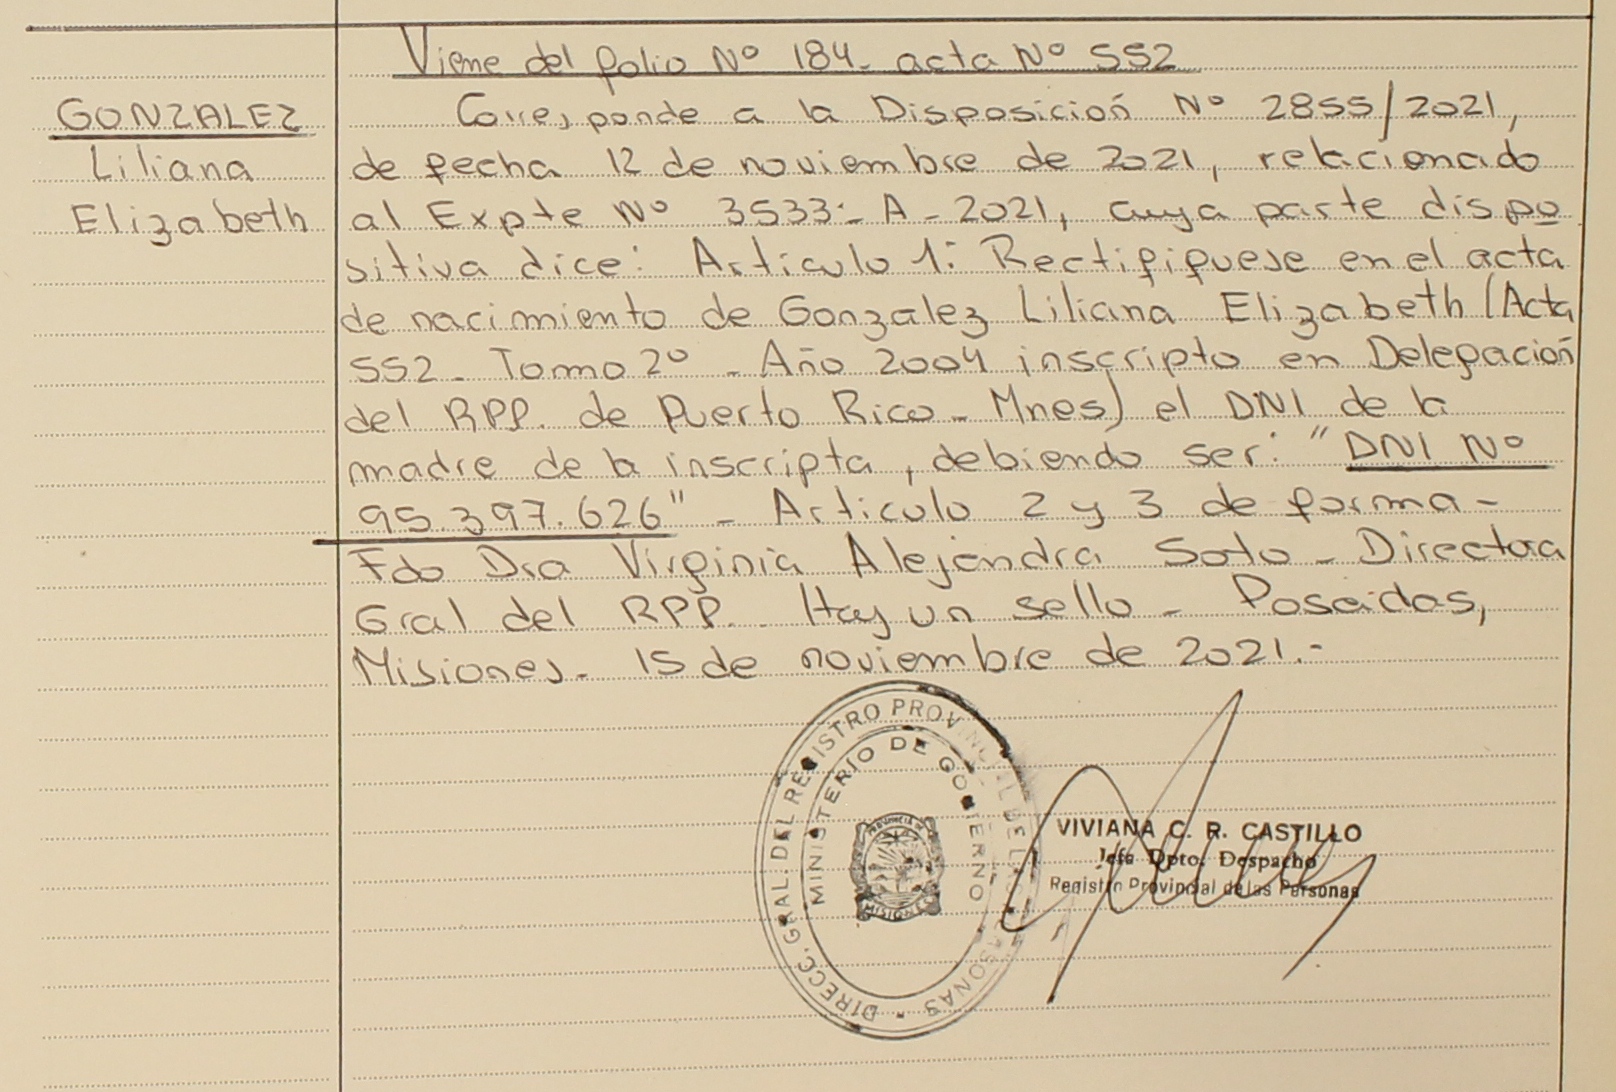 Viene del folio Nº 184- acta Nº 552
GONZALEZ
Liliana
Elizabeth
Corresponde a la Disposición Nº 2855/2021,
de fecha 12 de noviembre de 2021, relacionado
al Expte Nº 3533-A-2021, cuya parte dispo
sitiva dice: Articulo 1: Rectifiquese en el acta
de nacimiento de Gonzalez Liliana Elizabeth (Acta
552- Tomo 2º - Año 2004 inscripto en Delegación
del RPP. de Puerto Rico - Mnes) el DNI de la
madre de la inscripta, debiendo ser: "DNI Nº
95.397.626" - Articulo 2 y 3 de forma -
Fdo Dra Virginia Alejandra Soto - Directora
Gral del RPP. Hay un sello - Posadas,
Misiones- 15 de noviembre de 2021.-
DIRECC. GRAL. DEL REGISTRO PROVINCIAL DE LAS PERSONAS
MINISTERIO DE GOBIERNO
PROVINCIA DE
MISIONES
VIVIANA C. R. CASTILLO
Jefa Dpto. Despacho
Registro Provincial de las Personas